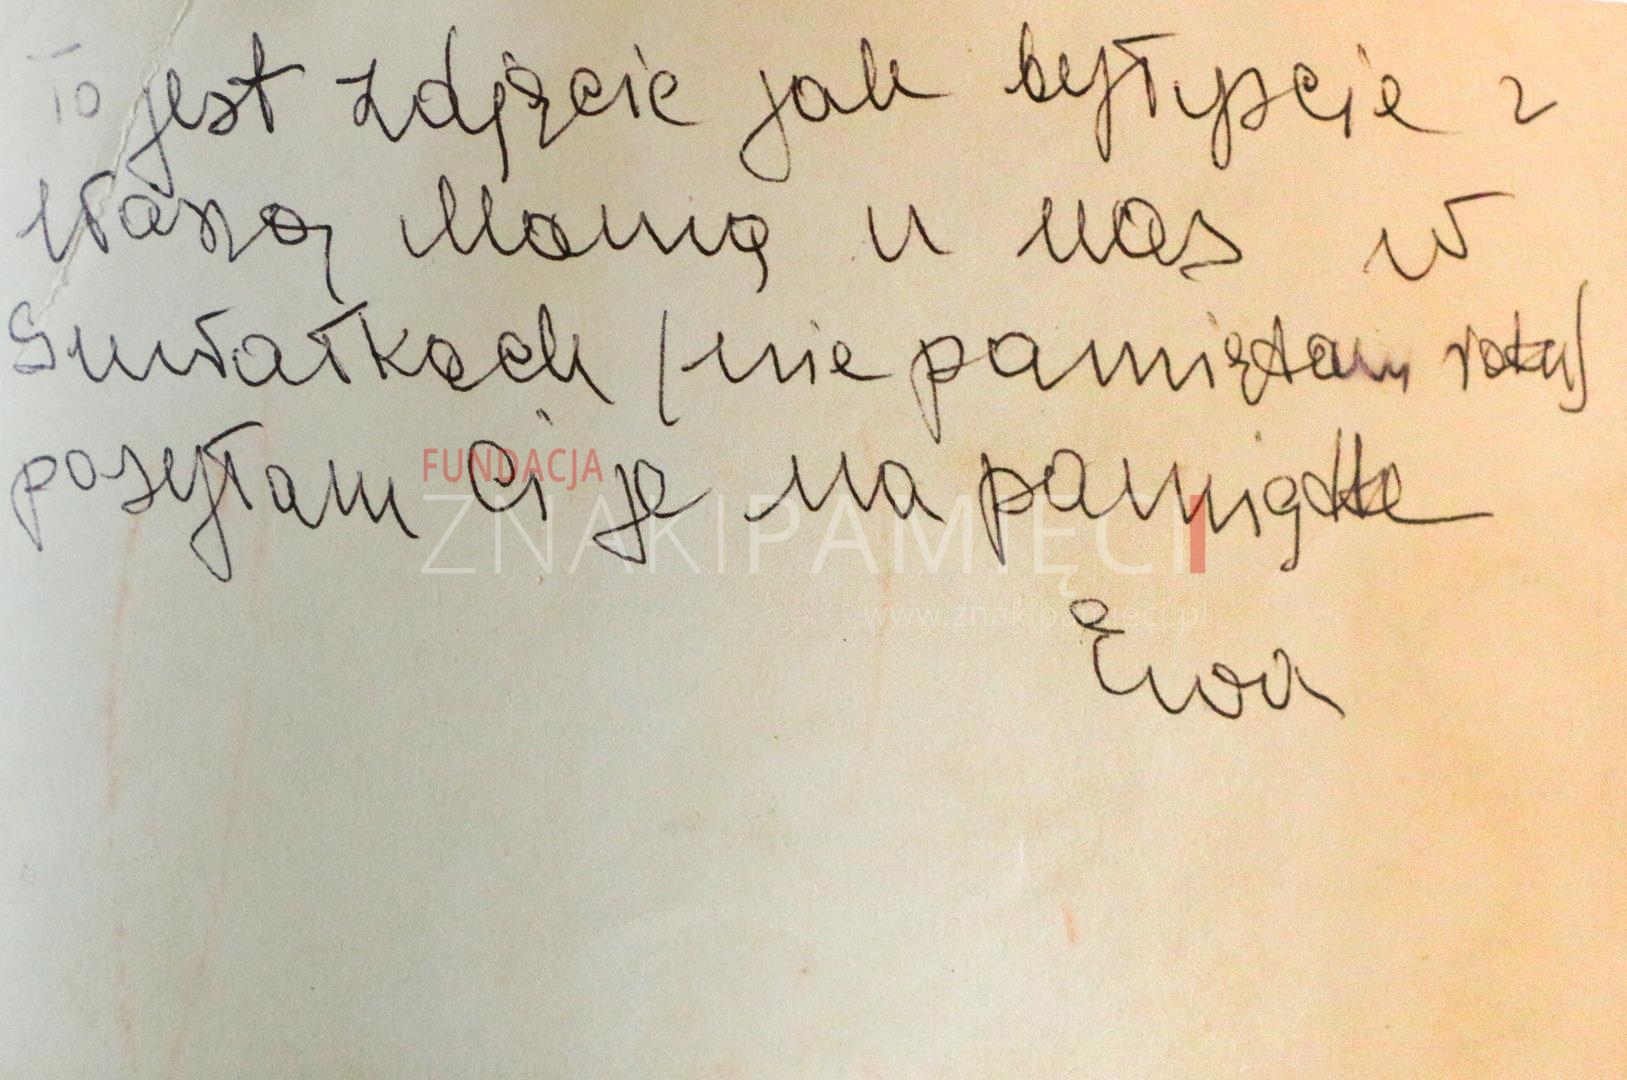 To jest zdjęcie jak byłyście z
Waszą Mamą u nas w
Suwałkach /nie pamiętam roku/
posyłam Ci je na pamiątkę
Ewa
FUNDACJA
ZNAKI PAMIĘCI
www.znakipamieci.pl